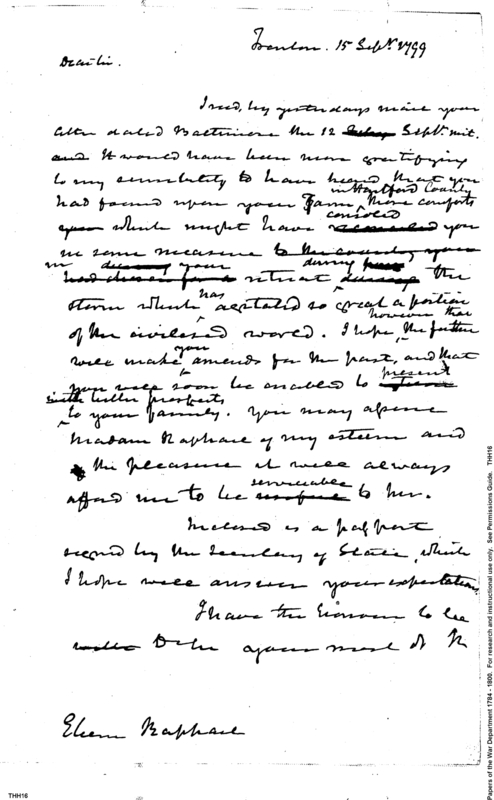 Trenton. 15 Sept. 1799
Dear Sir.
I recd, by yesterdays mail your
letter dated Baltimore the 12 Sept. inst.
and it would have been more gratifying
to my sensibility to have heard that you
in Hartford County
had found upon your Farm, those comforts
consoled
which might have you
in some measure to the country your
in your during
retreat the
has
storm which agitated so great a portion
however that
of the civilised world. I hope, the future
you
will make amends for the past, and that
present
you will soon be enabled to
with better prospects
to your family. You may assure
Madam Raphael of my esteem and
the pleasure it will always
serviceable
afford me to be to her.
Inclosed is a passport
signed by the Secretary of State, which
I hope will answer your expectations
I have the honour to be
D Sir your most Ob
Raphael
THH16
Papers of the War Department 1784 - 1800. For research and instructional use only. See Permissions Guide. THH16